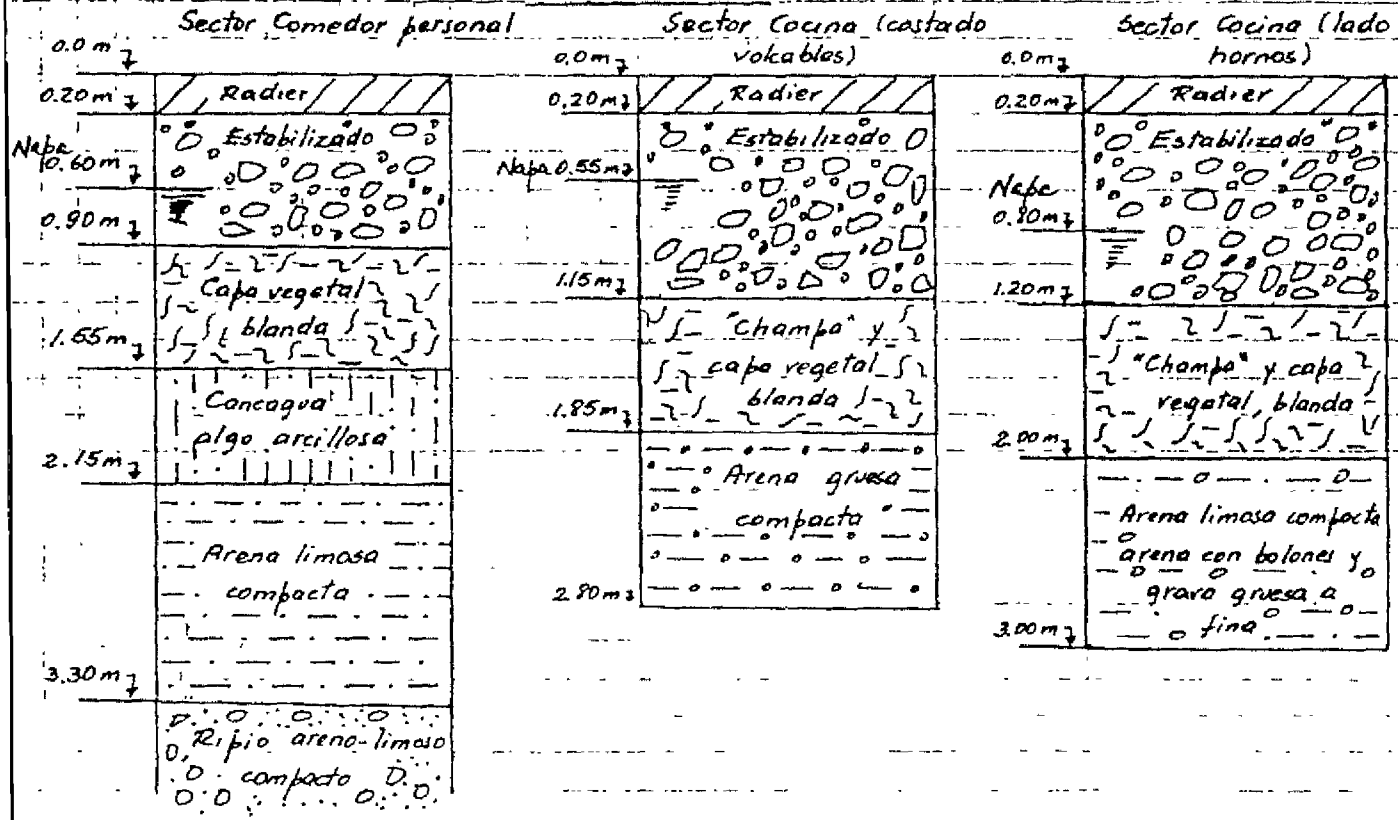 Sector Comedor personal
0.0 m
0.20 m
Radier
Estabilizado
Napa
0.60 m
0.90 m
Capa vegetal
blanda
1.55 m
Cancagua
algo arcillosa
2.15 m
Arena limosa
compacta
3.30 m
Ripio areno-limoso
compacto
Sector Cocina (costado
volcables)
0.0 m
0.20 m
Radier
Estabilizado
Napa 0.55 m
1.15 m
"Champa" y
capa vegetal
blanda
1.85 m
Arena gruesa
compacta
2.80 m
Sector Cocina (lado
hornos)
0.0 m
0.20 m
Radier
Estabilizado
Napa
0.80 m
1.20 m
"Champa" y capa
vegetal, blanda
2.00 m
Arena limosa compacta
arena con bolones y
grava gruesa a
fina
3.00 m